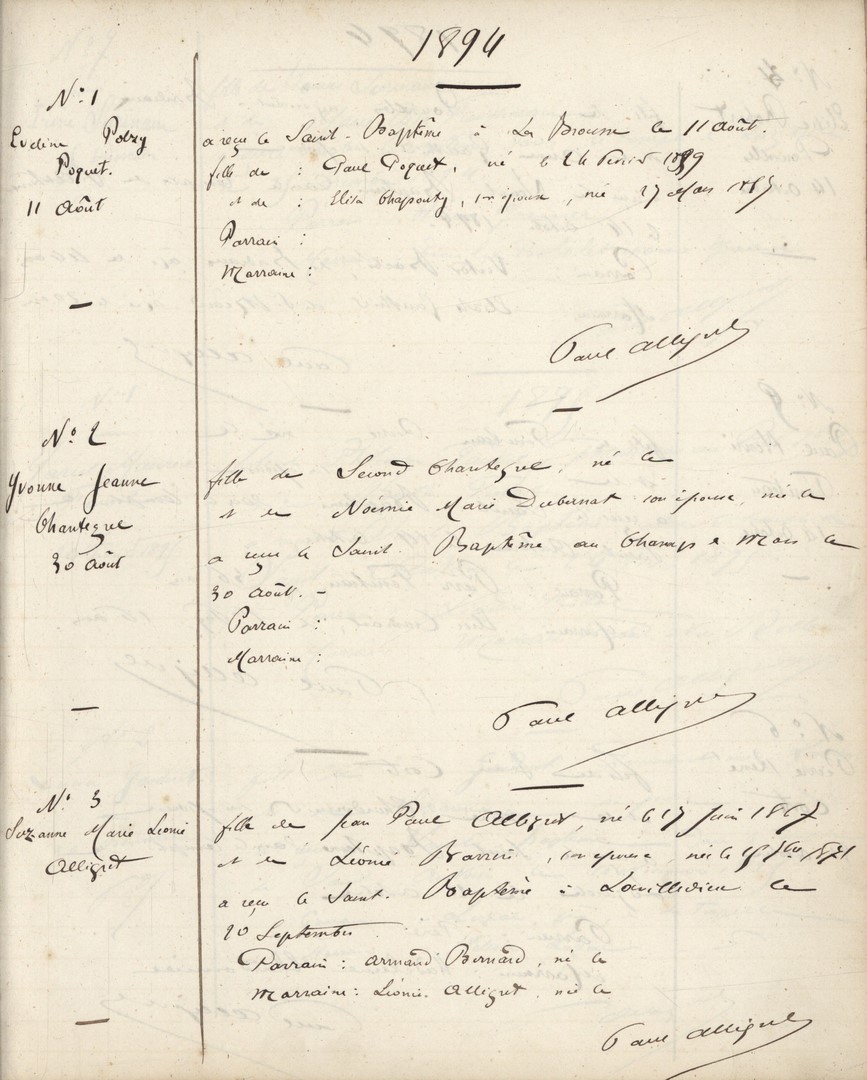 1894
N° 1
Eveline
Poquet.
11 Août
a reçu le Saint-Baptême à La Brousse le 11 Août.
fille de : Paul Poquet, né le
et de : Elisa Chapouty, son épouse, née 27 Mars
Parrain :
Marraine :
Paul Alligret
N° 2
Yvonne Jeanne
Chantegre
30 Août
fille de Second Chantegre, né le
et de Noémie Marie Dubernat son épouse, née le
a reçu le Saint-Baptême au Champ de Mars le
30 Août. -
Parrain :
Marraine :
Paul Alligret
N° 3
Suzanne Marie Léonie
Alligret
fille de Jean Paul Alligret, né le 17 Juin 1867
et de Léonie son épouse née le 7bre 1871
a reçu le Saint-Baptême à Lavilledieu le
20 Septembre
Parrain : Armand Bernard, né le
Marraine : Léonie Alligret, née le
Paul Alligret